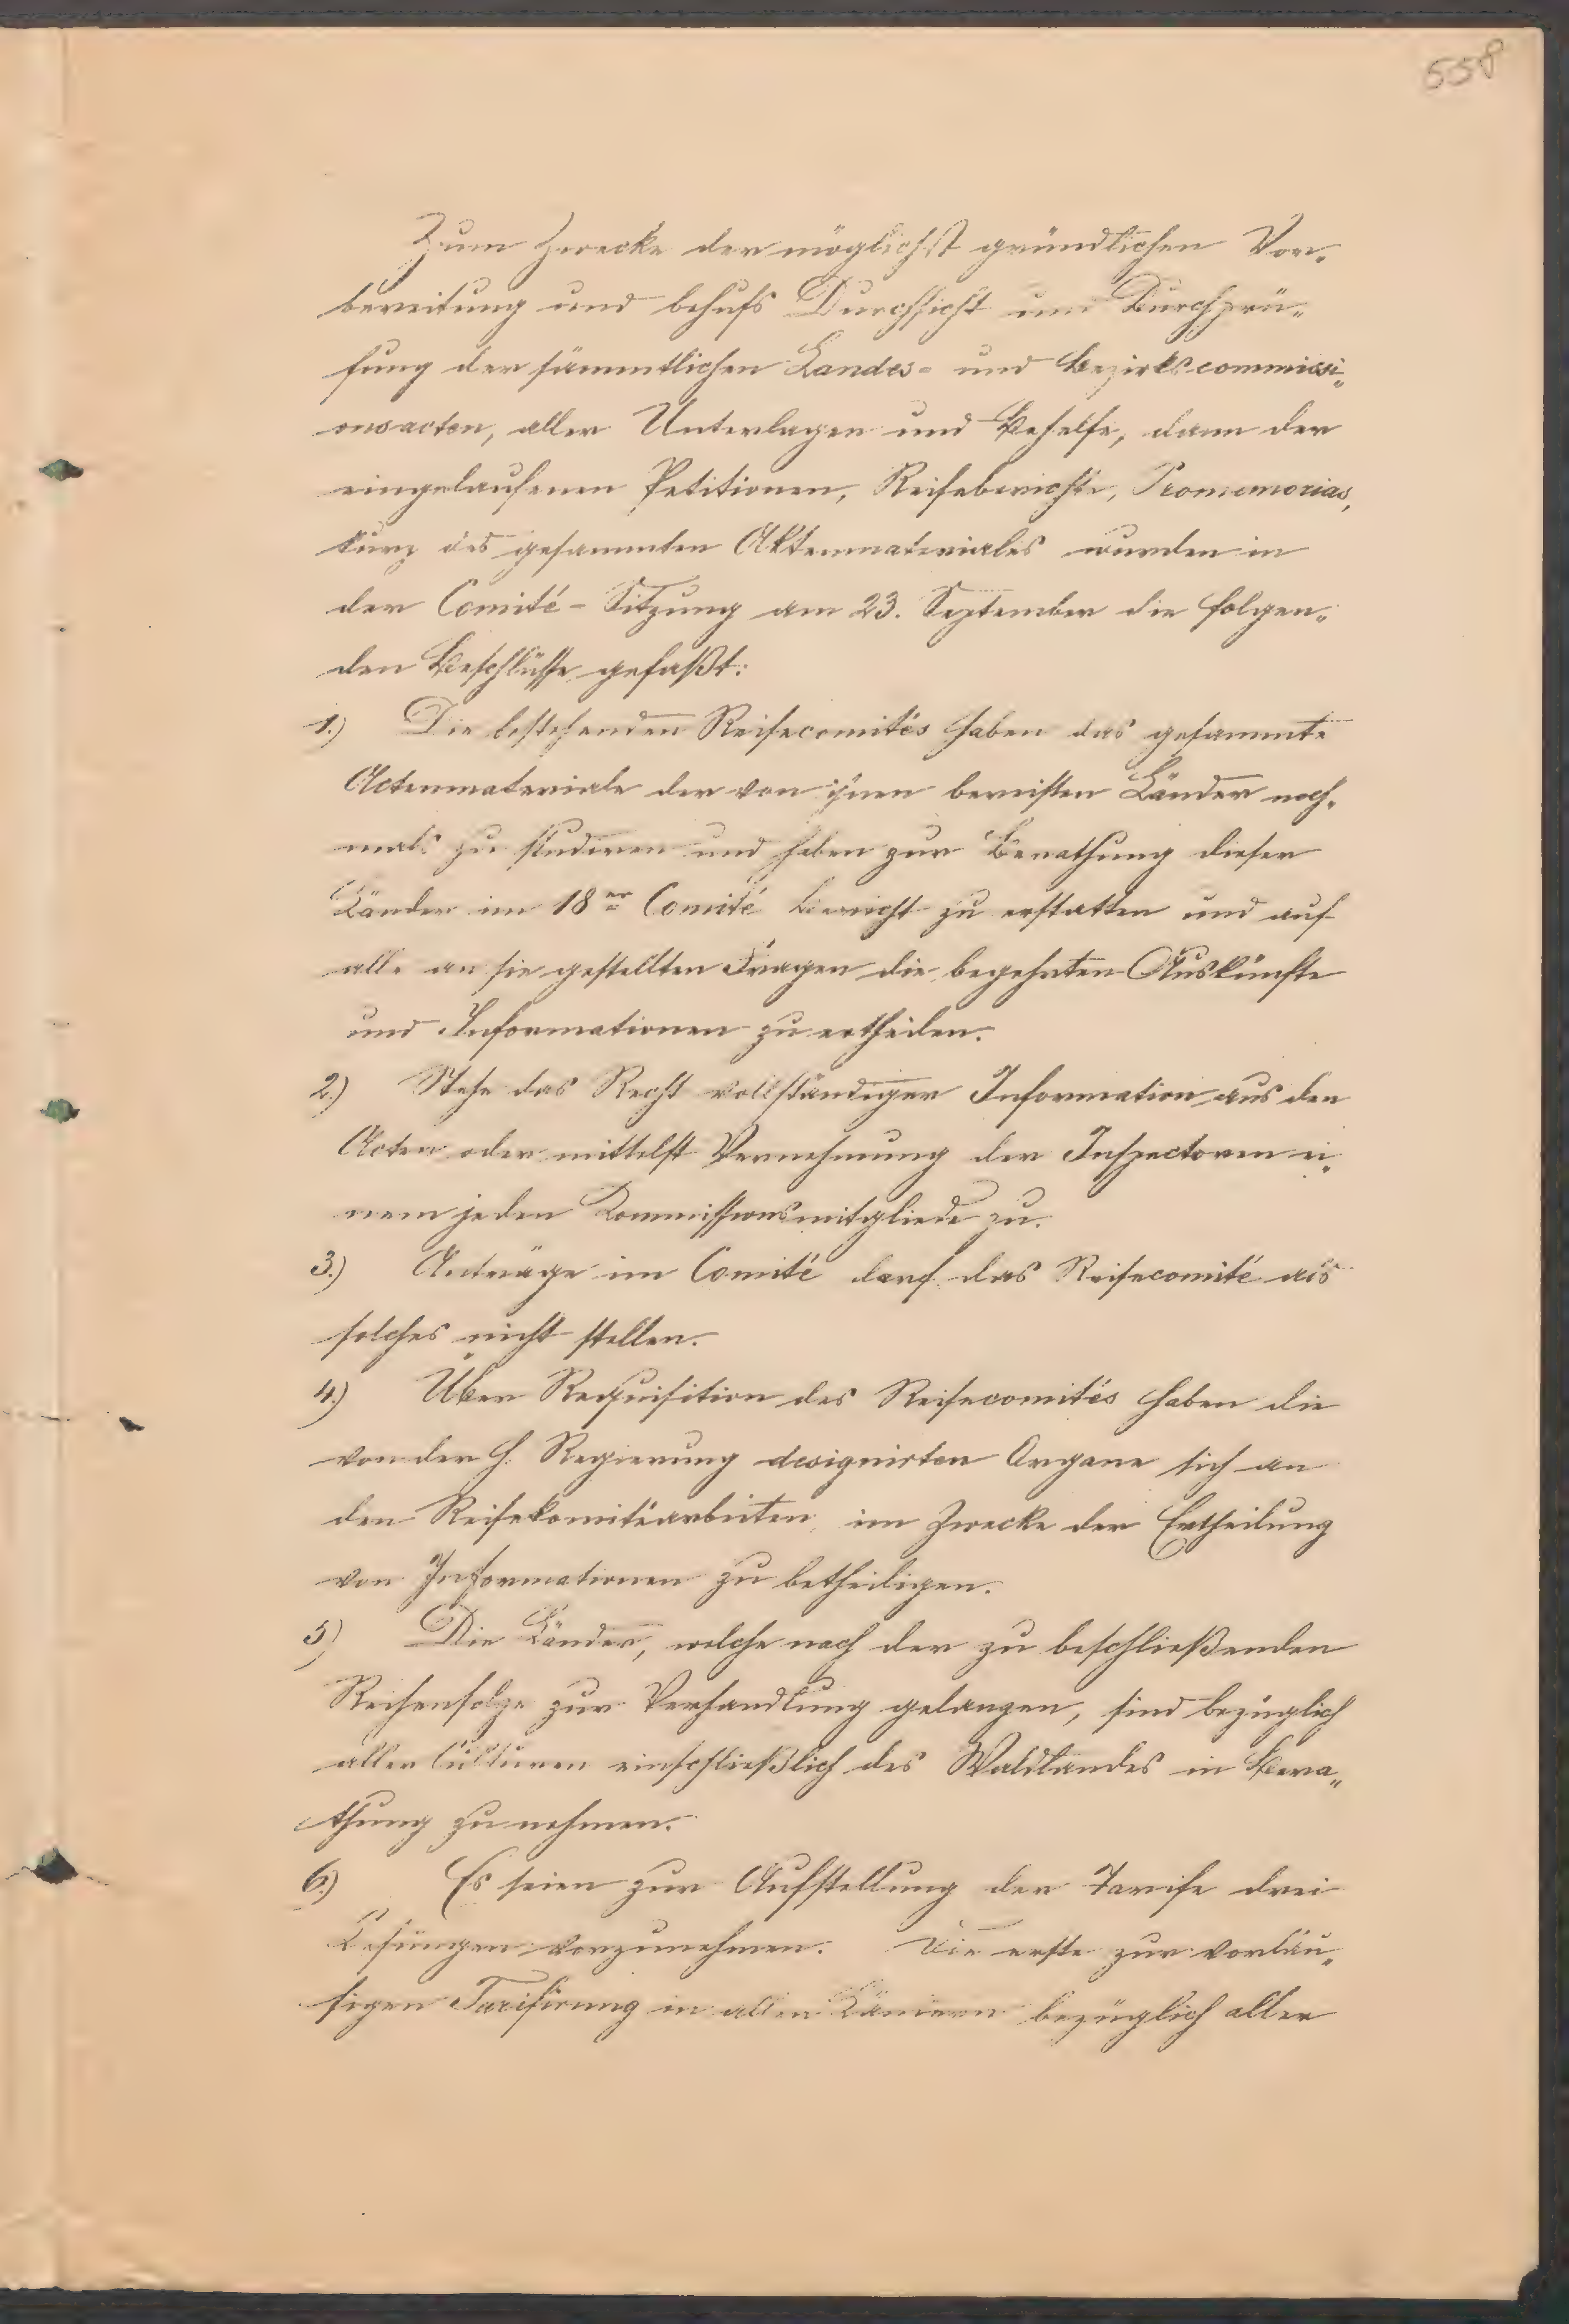 558
Zum Zwecke der möglichst gründlichen Vor„
bereitung und behufs Durchsicht und Durchprü„
fung der sämmtlichen Landes- und Bezirkscommissi„
onsacten, aller Unterlagen und Behelfe, dann der
eingelaufenen Petitionen, Reiseberichte, Promemorias,
kurz des gesammten Aktenmateriales wurden in
der Comité-Sitzung am 23. September die folgen„
den Beschlüsse gefaßt:
1.) Die bestehenden Reisecomités haben das gesammte
Actenmateriale der von ihnen bereisten Länder noch„
mals zu studieren und haben zur Berathung dieser
Länder im 18er Comité Bericht zu erstatten und auf
alle an sie gestellten Fragen die begehrten Auskünfte
und Informationen zu ertheilen.
2.) Stehe das Recht vollständiger Information aus den
Acten oder mittelst Vernehmung der Inspectoren ei„
nem jeden Kommissionsmitgliede zu.
3.) Anträge im Comité darf das Reisecomité als
solches nicht stellen.
4.) Über Requisition des Reisecomités haben die
von der h. Regierung designirten Organe sich an
den Reisekomitéarbeiten im Zwecke der Ertheilung
von Informationen zu betheiligen.
5) Die Länder, welche nach der zu beschließenden
Reihenfolge zur Verhandlung gelangen, sind bezüglich
aller Culturen einschließlich des Waldlandes in Bera„
thung zu nehmen.
6.) Es seien zur Aufstellung der Tarife drei
Lesungen vorzunehmen. Die erste zur vorläu„
figen Tarifirung in allen Ländern bezüglich aller